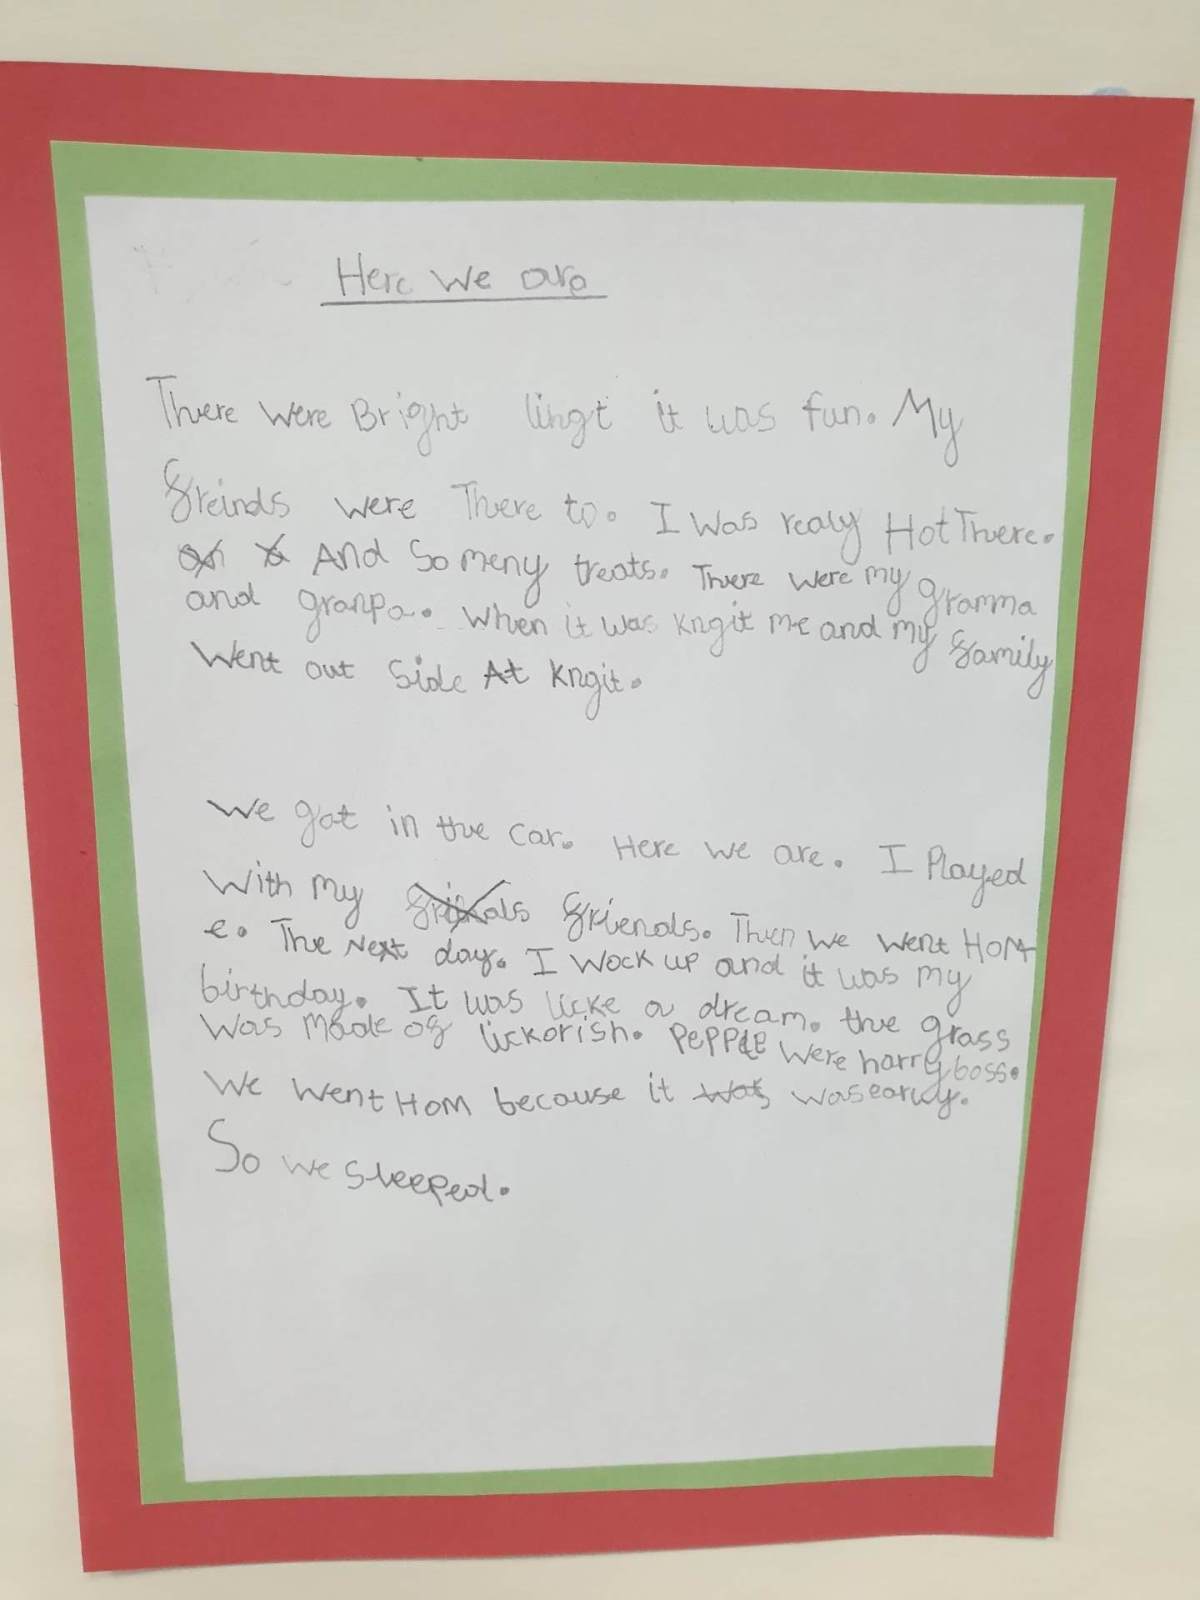 Here we are
There were Bright lingt it was fun. My
freinds were There to. I was realy Hot There.
And So meny treats. There were my gramma
and granpa. when it was kngit me and my family
went out Side At kngit.
We got in the car. Here we are. I Played
with my friends. Then we went HOM
e. The Next day. I wock up and it was my
birthday. It was licke a dream. the grass
was made of lickorish. were harryboss.
We went HOM because it was earlly.
So we sleeped.